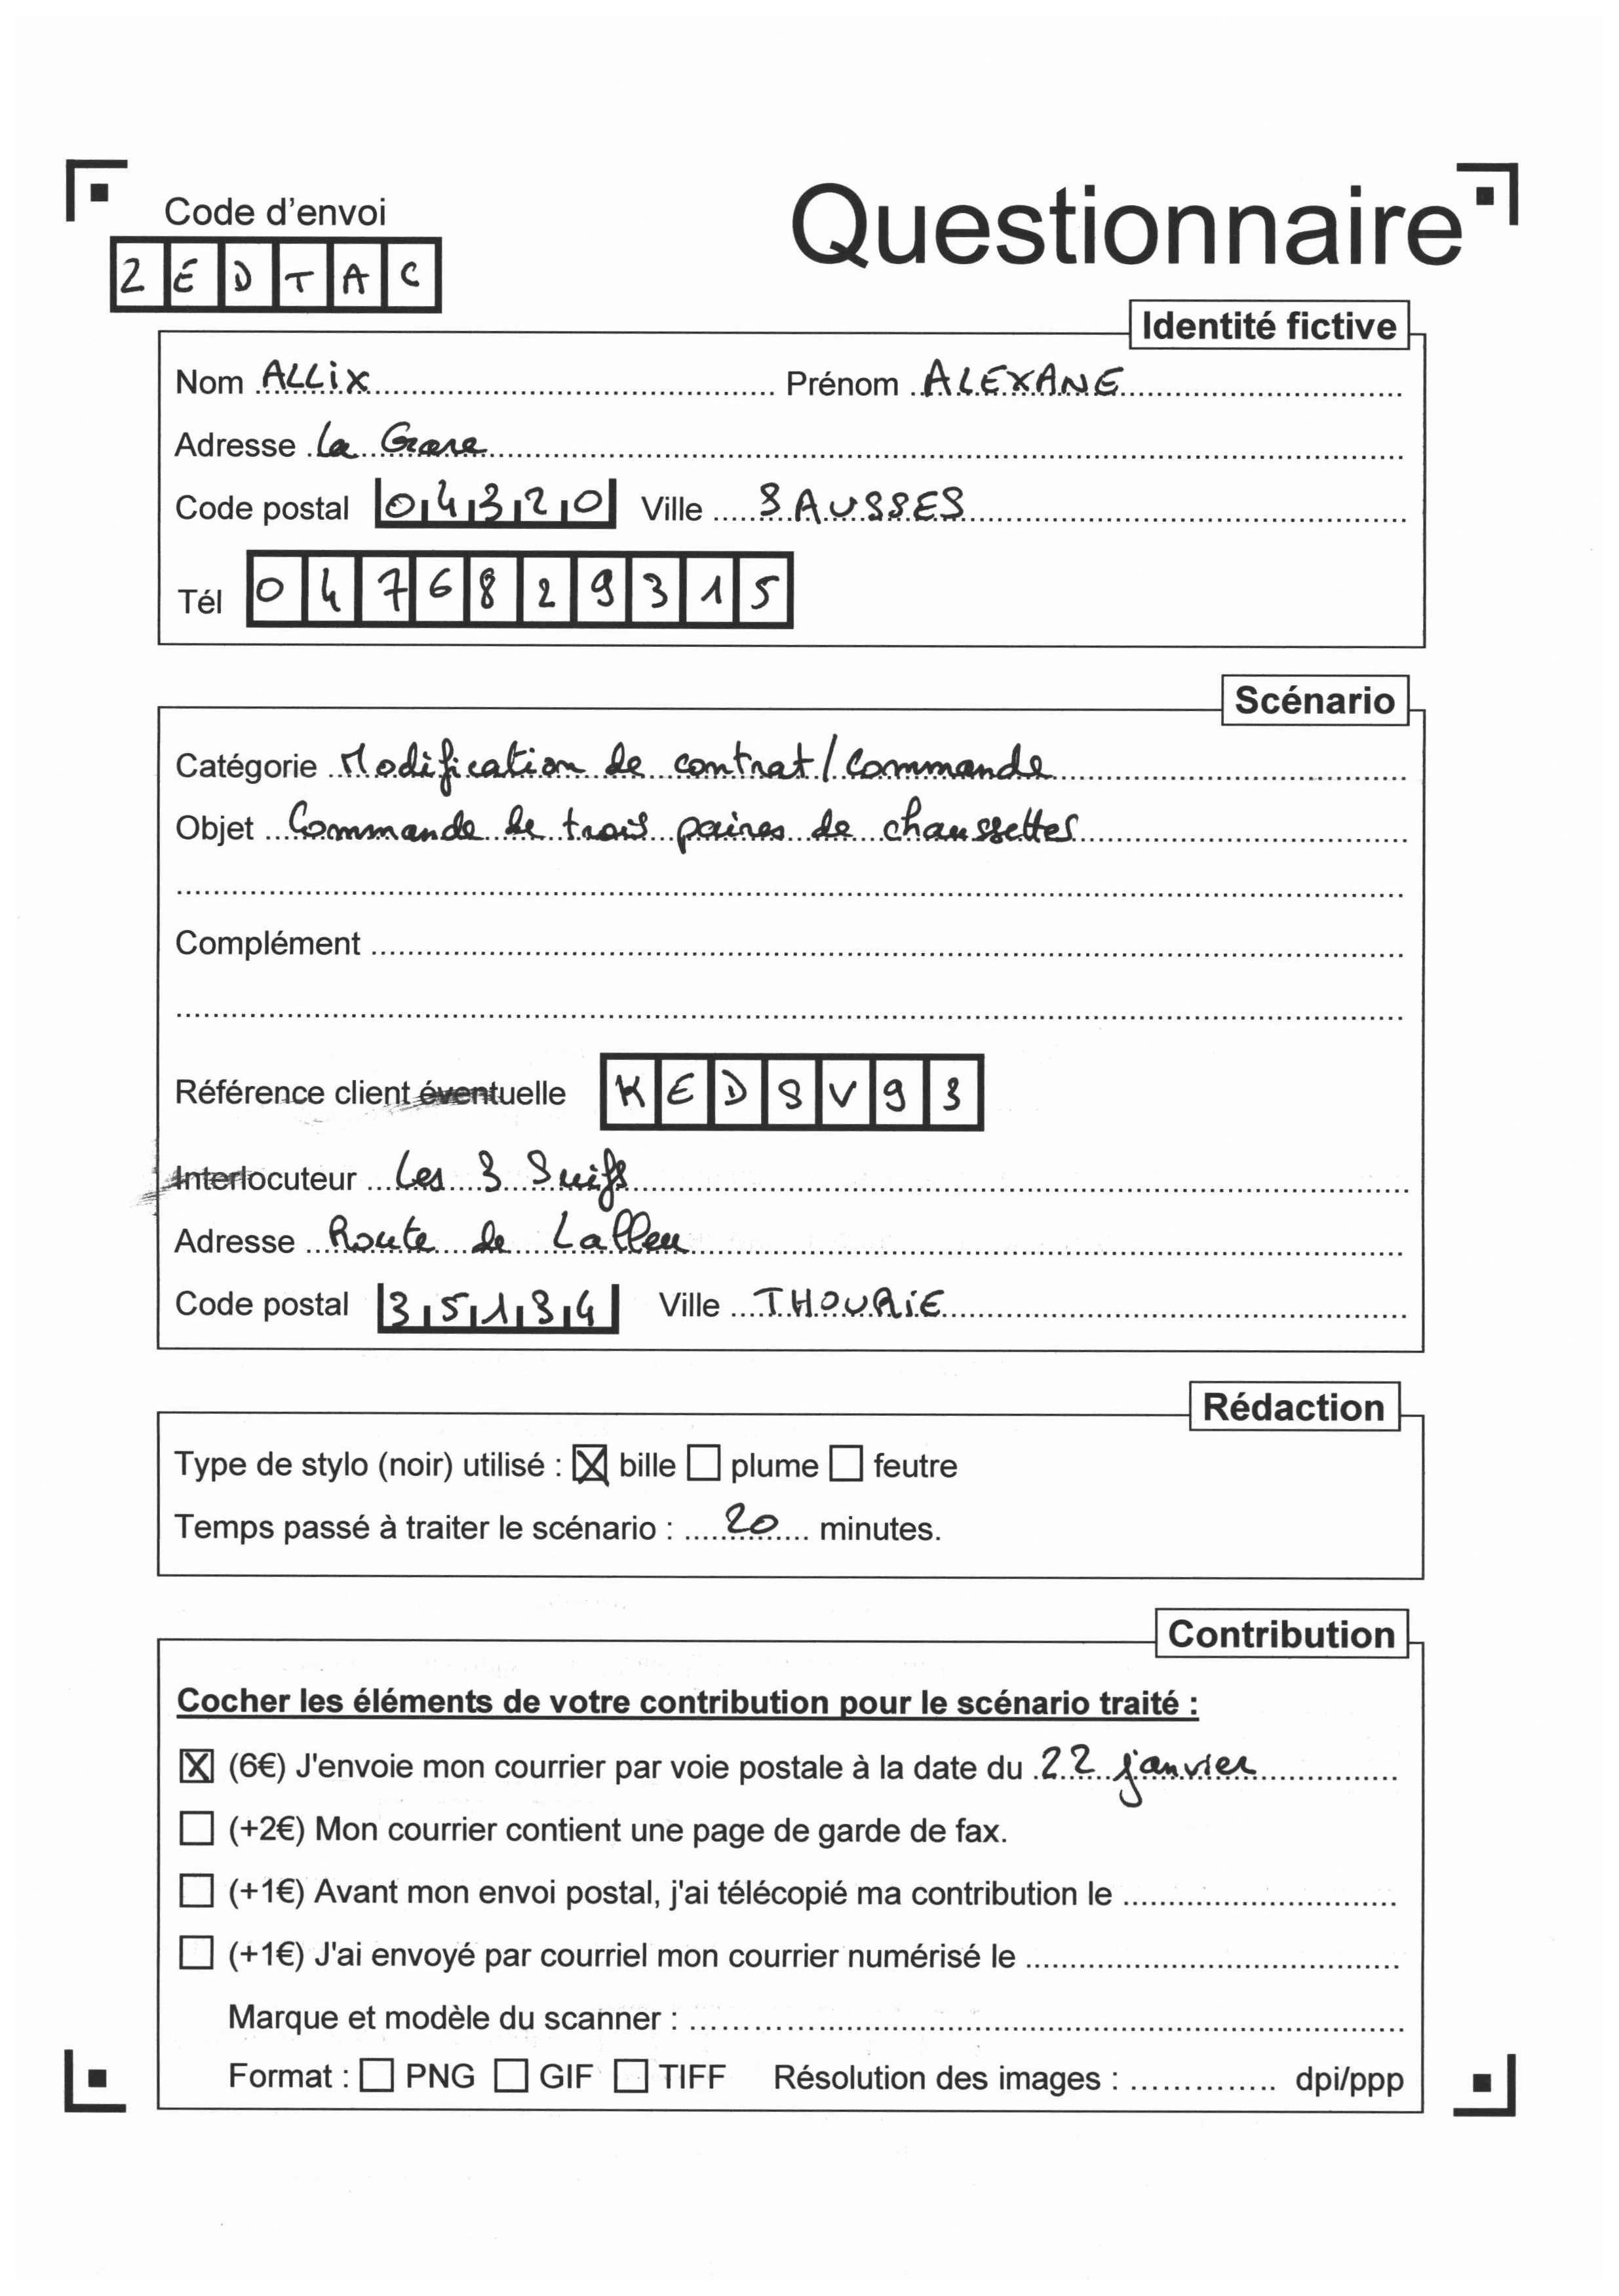 Code d'envoi
Questionnaire
2 E D T A C
Identité fictive
Nom ALLiX Prénom ALEXANE
Adresse La Gare
Code postal 04320 Ville SAUSSES
Tél 0 4 7 6 8 2 9 3 1 5
Scénario
Catégorie Modification de contrat/Commande
Objet Commande de trois paires de chaussettes
Complément
Référence client éventuelle K E D S V 9 3
Interlocuteur Les 3 Suifs
Adresse Route de Lalleu
Code postal 35134 Ville THOURiE
Rédaction
Type de stylo (noir) utilisé : ☒ bille ☐ plume ☐ feutre
Temps passé à traiter le scénario : 20 minutes.
Contribution
Cocher les éléments de votre contribution pour le scénario traité :
☒ (6€) J'envoie mon courrier par voie postale à la date du 22 janvier
☐ (+2€) Mon courrier contient une page de garde de fax.
☐ (+1€) Avant mon envoi postal, j'ai télécopié ma contribution le
☐ (+1€) J'ai envoyé par courriel mon courrier numérisé le
Marque et modèle du scanner :
Format : ☐ PNG ☐ GIF ☐ TIFF Résolution des images : dpi/ppp